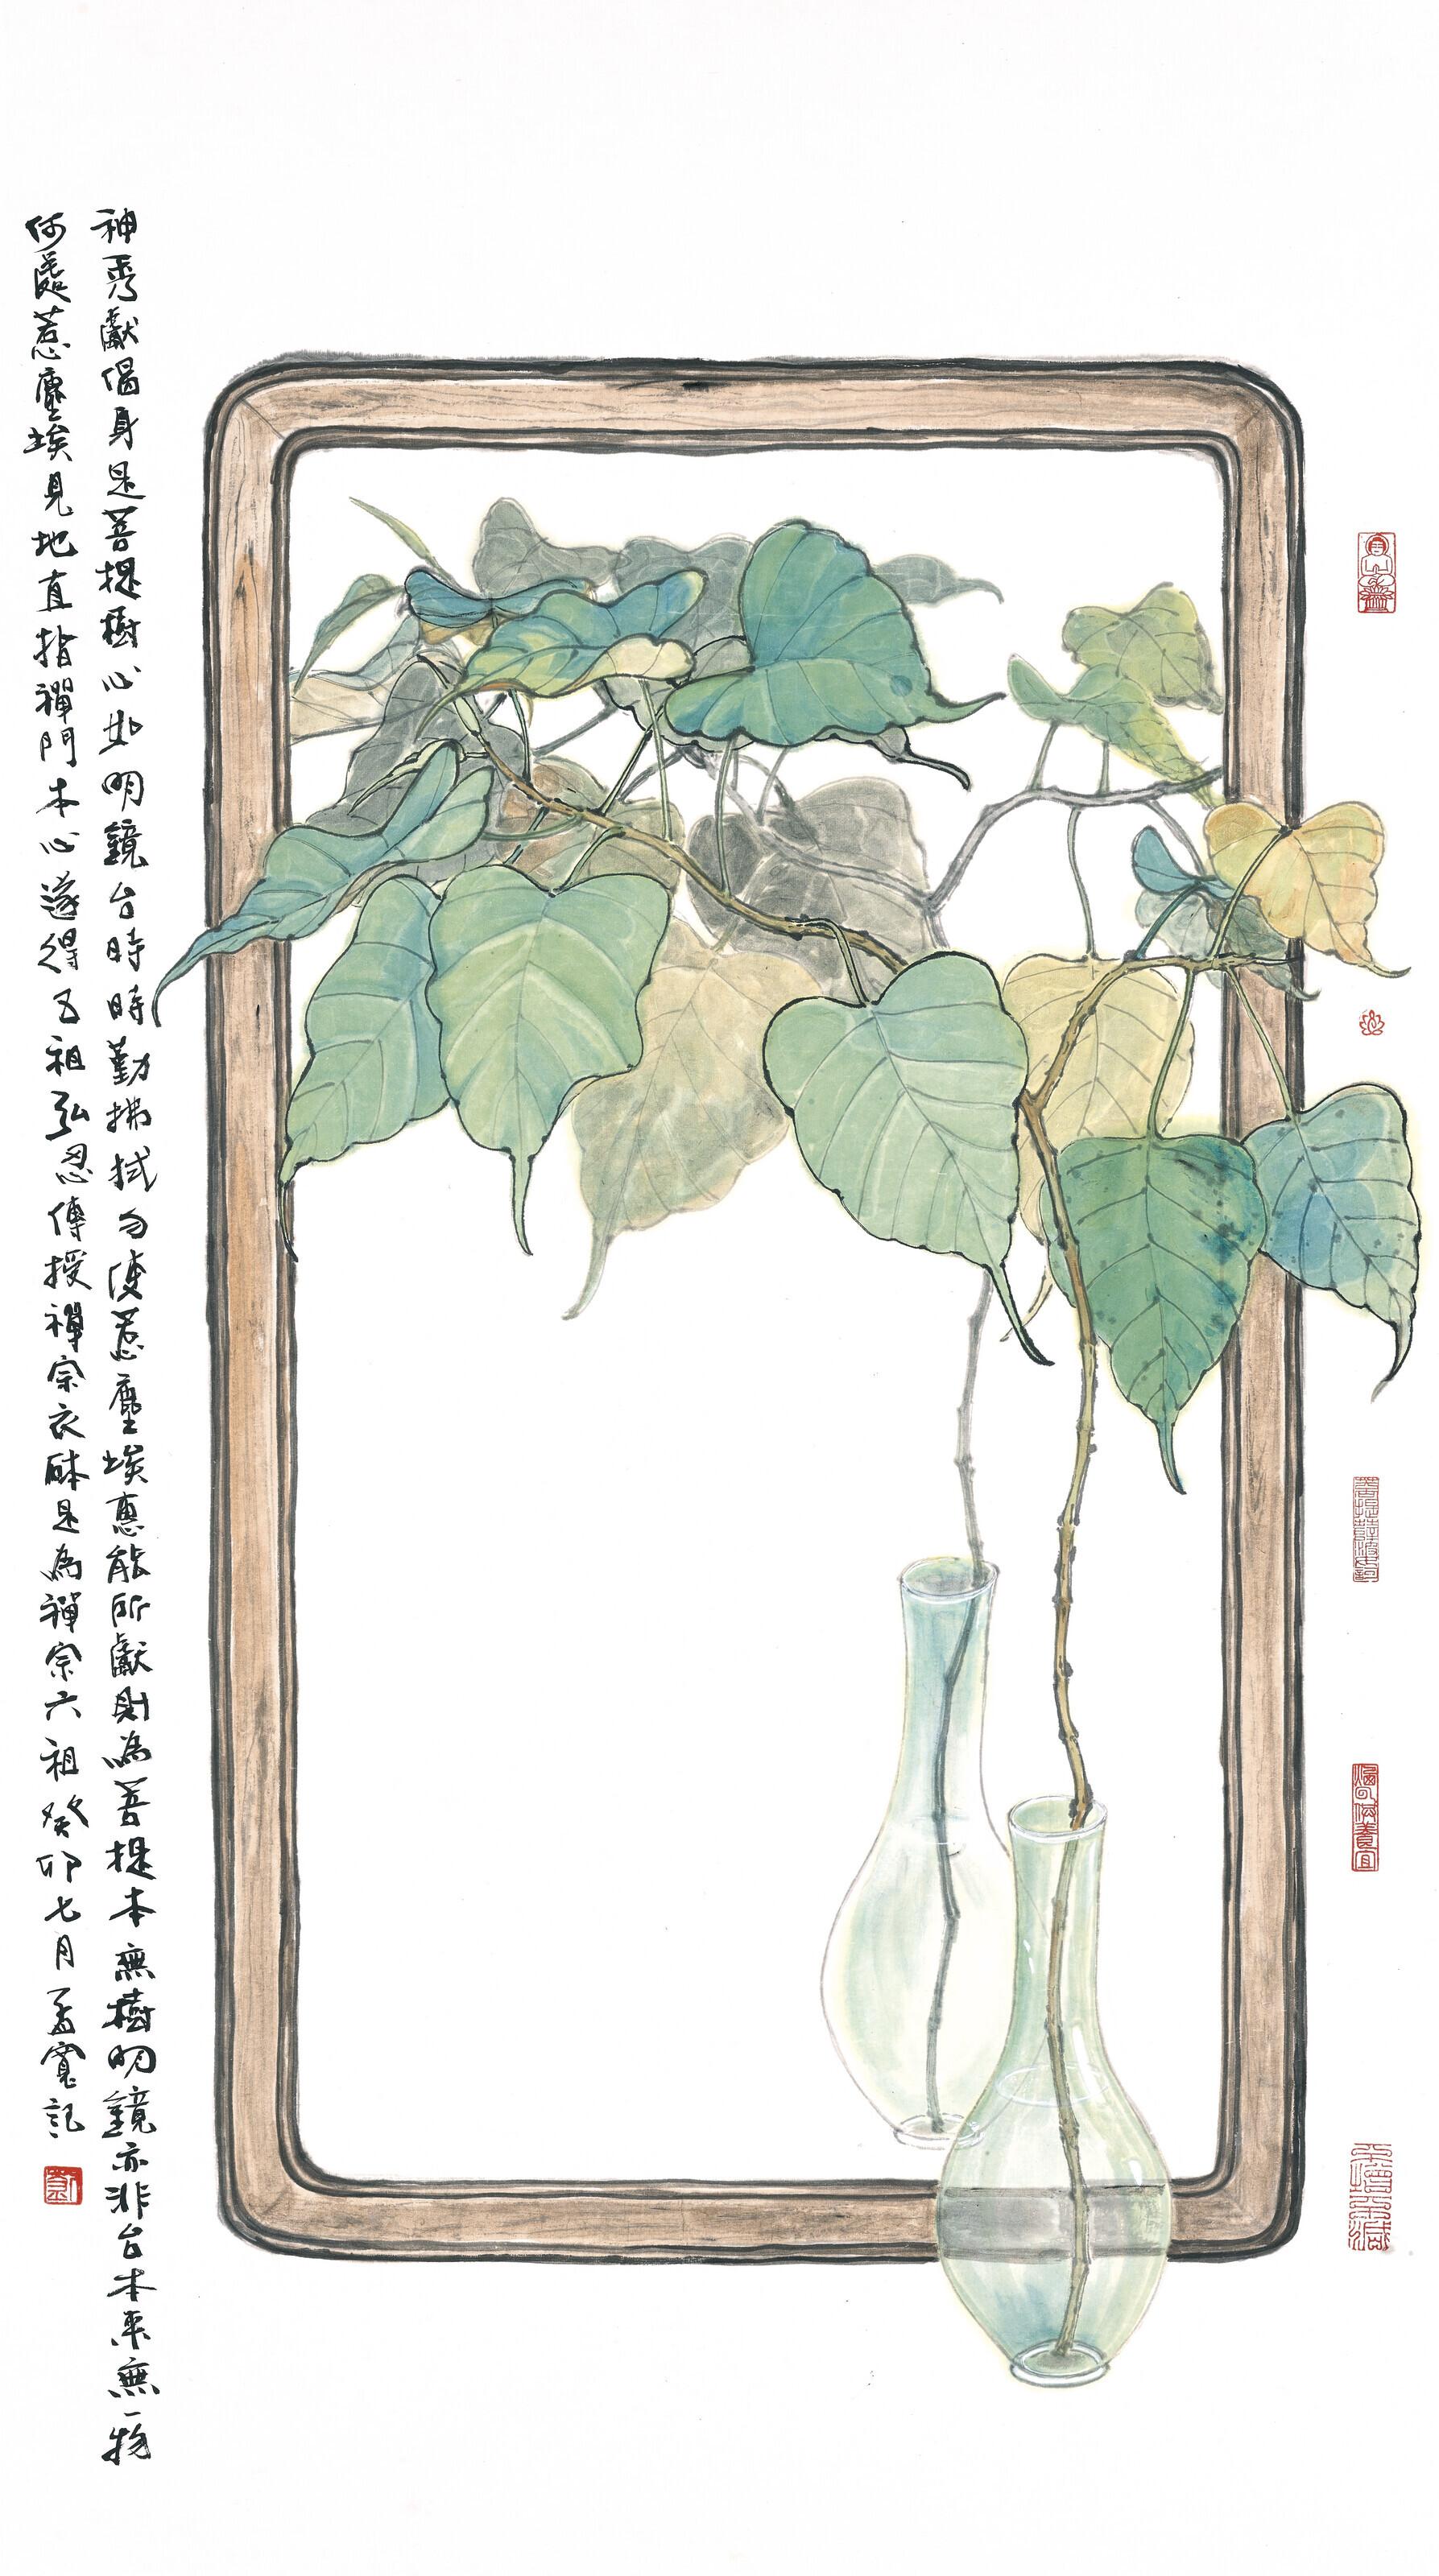 神秀獻偈身是菩提樹心如明鏡台時時勤拂拭勿使惹塵埃惠能所獻則為菩提本無樹明鏡亦非台本來無一物
何處惹塵埃見地直指禪門本心遂得五祖弘忍傳授禪宗衣缽是為禪宗六祖癸卯七月孟寬記
不增不減